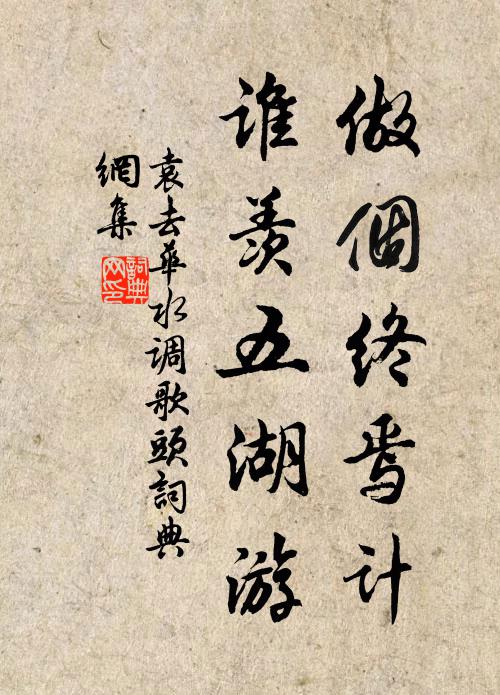 做個終焉计
誰羡五湖游
袁去華水调歌頭詞典
網集
詞典网印